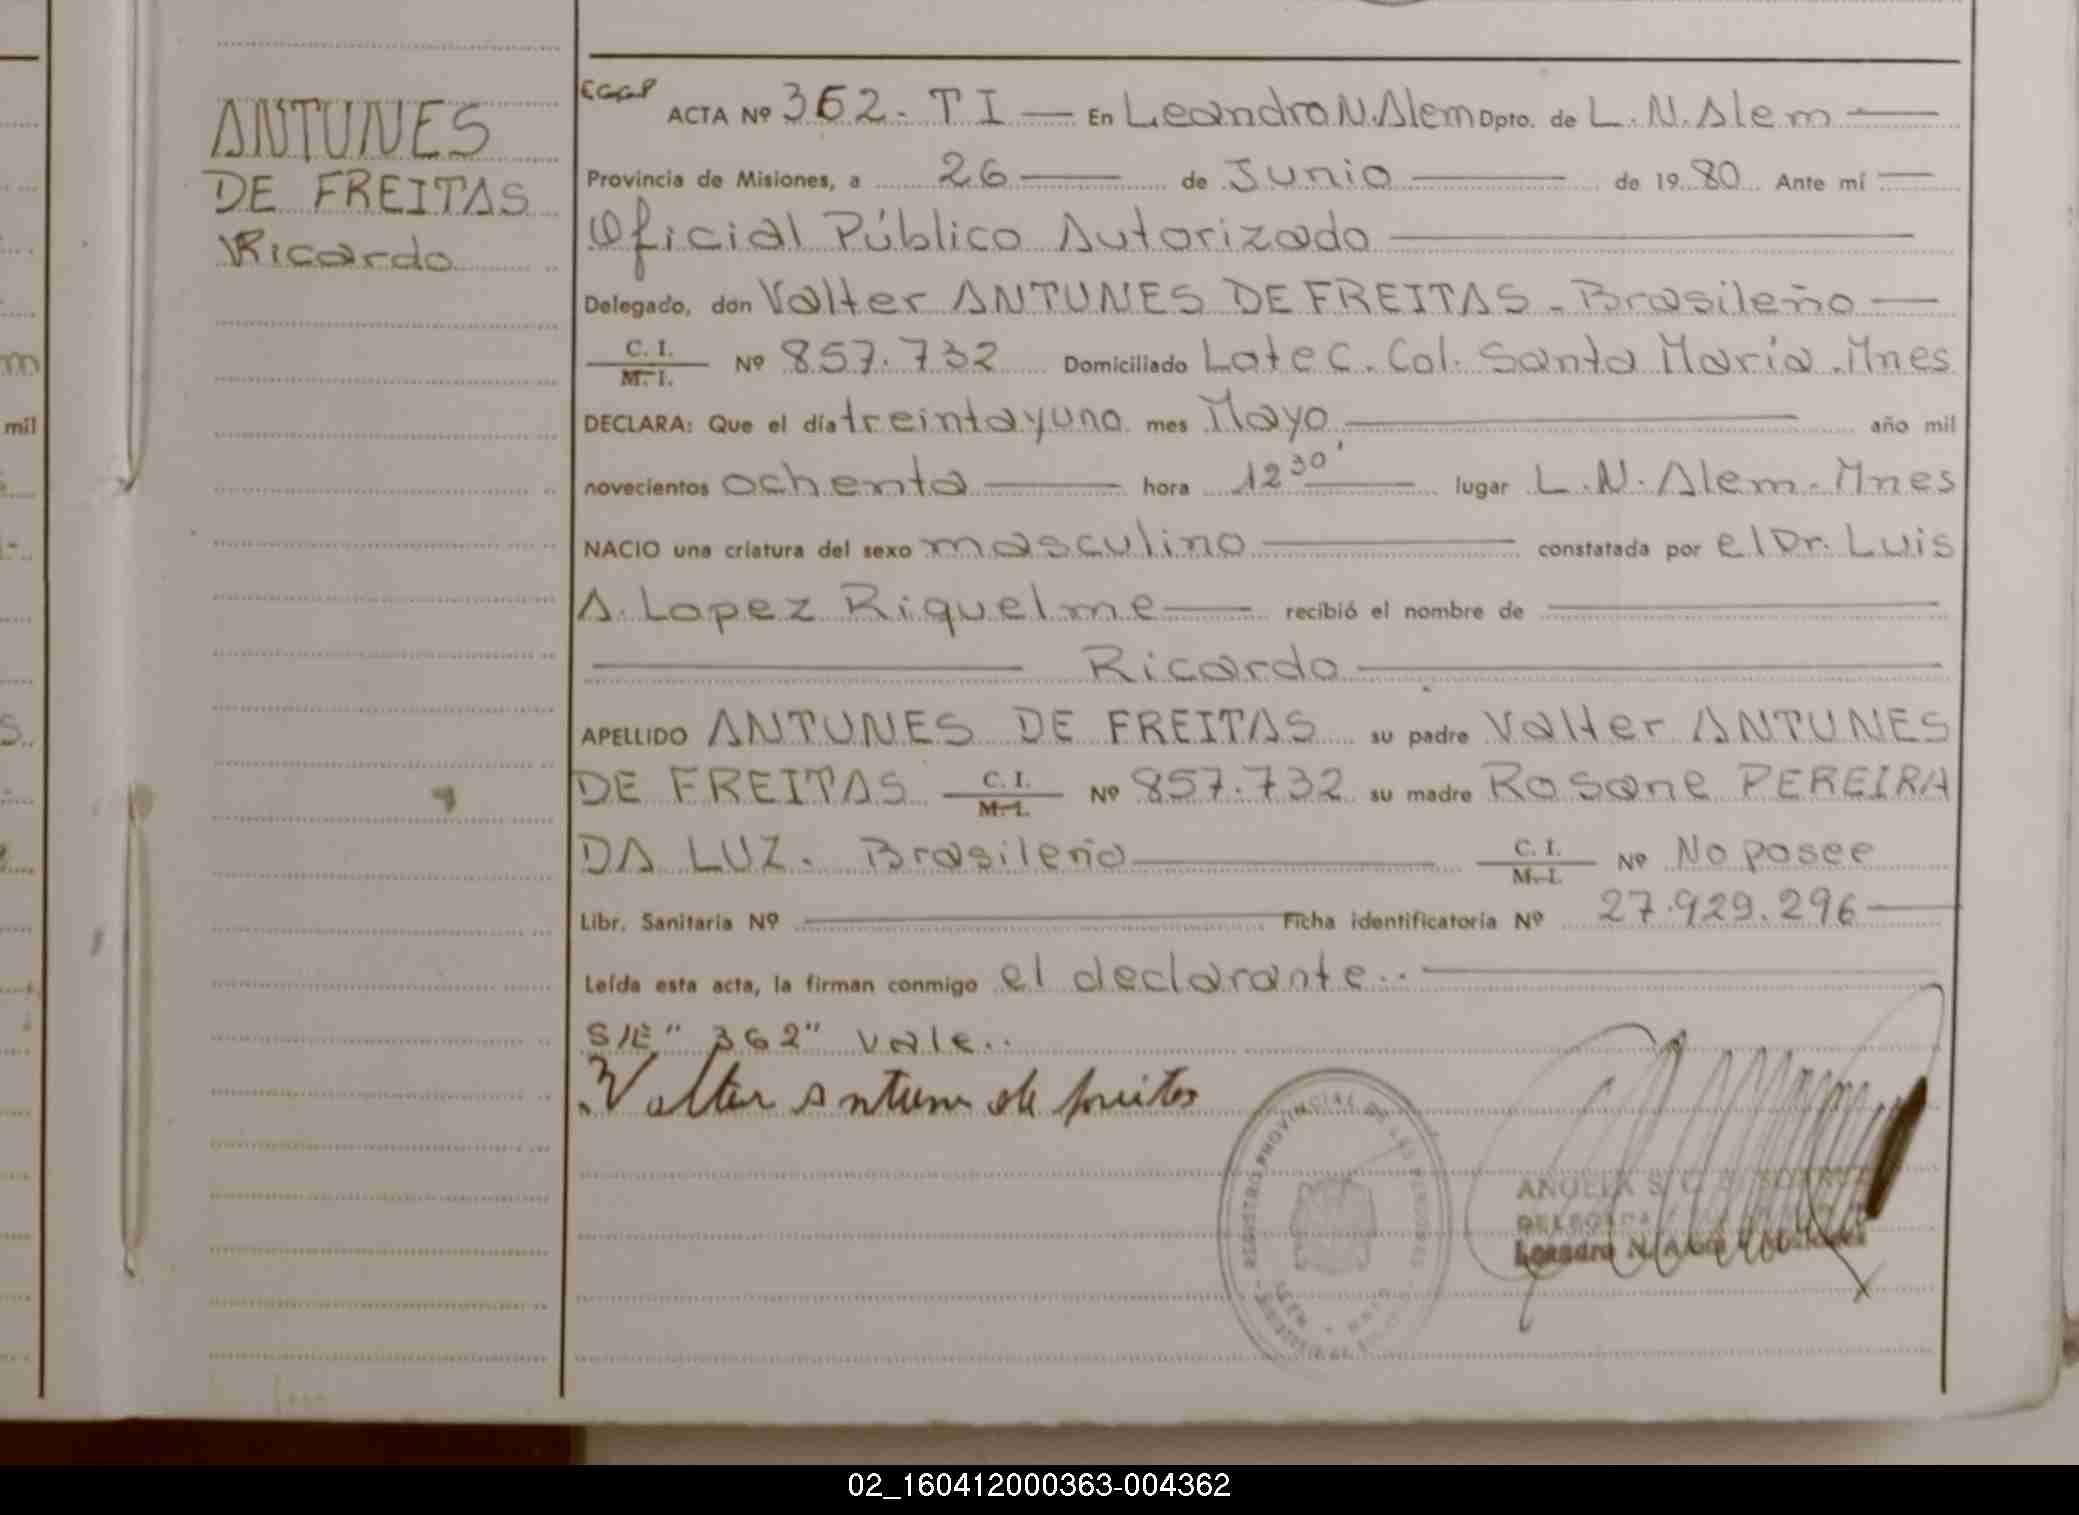 ANTUNES
DE FREITAS
Ricardo
ACTA Nº 362.. T I — En Leandro N. Alem Dpto. de L. N. Alem —
Provincia de Misiones, a 26 — de Junio — de 1980 Ante mí —
Oficial Público Autorizado —
Delegado, don Valter ANTUNES DE FREITAS - Brasileño —
C. I. / M. I. Nº 857.732 Domiciliado Lote C. Col. Santa María. Mnes
DECLARA: Que el día treinta y uno mes Mayo — año mil
novecientos ochenta — hora 12 30' — lugar L. N. Alem. Mnes
NACIO una criatura del sexo masculino — constatada por el Dr. Luis
A. Lopez Riquelme — recibió el nombre de —
— Ricardo —
APELLIDO ANTUNES DE FREITAS su padre Valter ANTUNES
DE FREITAS C. I. / M. I. Nº 857.732 su madre Rosane PEREIRA
DA LUZ. Brasileña — C. I. / M. I. Nº No posee
Libr. Sanitaria Nº — Ficha identificatoria Nº 27.929.296 —
Leída esta acta, la firman conmigo el declarante.. —
S/E " 362" vale..
Valter Antunes de freitas
REGISTRO PROVINCIAL DE LAS PERSONAS
DELEGADA
Leandro N. Alem
mil
02_160412000363-004362